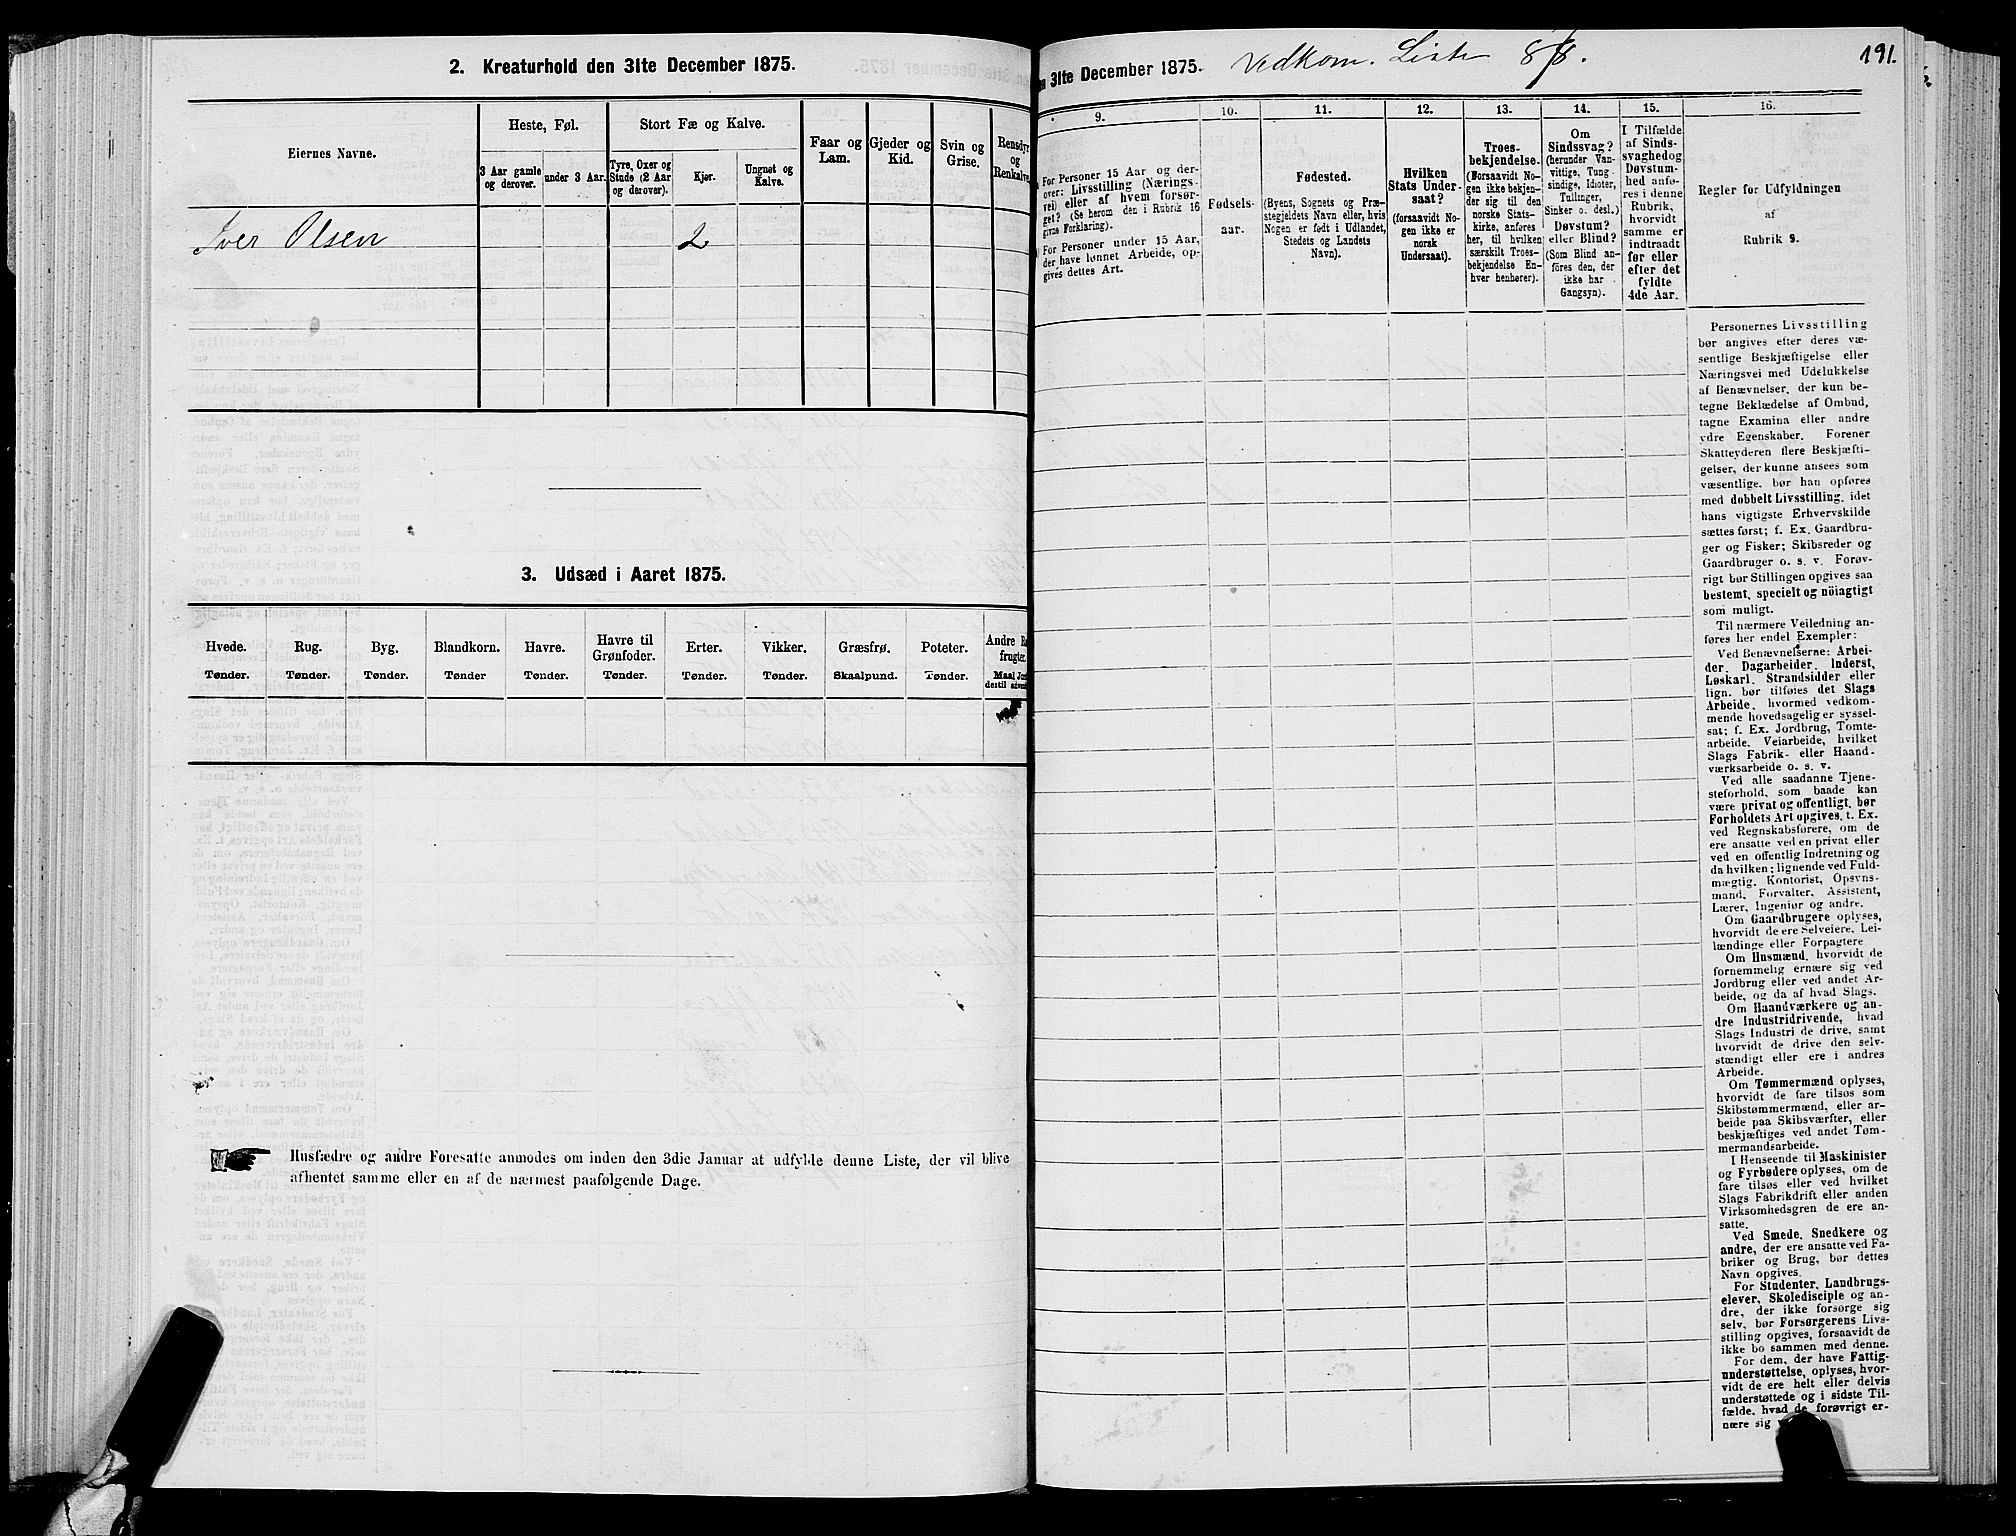 2. Kreaturhold den 31te December 1875.
Eiernes Navne.
Heste, Føl.
3 Aar gamle
og derover.
under 3 Aar.
Stort Fæ og Kalve.
Tyre, Oxer og
Stude (2 Aar
og derover).
Kjør.
Ungnet og
Kalve.
Faar og
Lam.
Gjeder og
Kid.
Svin og
Grise.
Rensdyr
og
Renkalve.
Iver Olsen
2
3. Udsæd i Aaret 1875.
Hvede.
Tønder.
Rug.
Tønder.
Byg.
Tønder.
Blandkorn.
Tønder
Havre.
Tønder.
Havre til
Grønfoder.
Tønder.
Erter.
Tønder.
Vikker.
Tønder.
Græsfrø.
Skaalpund.
Poteter.
Tønder.
Andre
frugter.
Maal
Husfædre og andre Foresatte anmodes om inden den 3die Januar at udfylde denne Liste, der vil blive
afhentet samme eller en af de nærmest paafølgende Dage.
31te December 1875. Vedkom. Liste 8/8.
191.
9.
For Personer 15 Aar og der-
over: Livsstilling (Nærings-
vei) eller af hvem forsør-
get? (Se herom den i Rubrik 16
givne Forklaring).
For Personer under 15 Aar,
der have lønnet Arbeide, op-
gives dettes Art.
10.
Fødsels-
aar.
11.
Fødested.
(Byens, Sognets og Præ-
stegjeldets Navn eller, hvis
Nogen er født i Udlandet,
Stedets og Landets
Navn).
12.
Hvilken
Stats Under-
saat?
(forsaavidt No-
gen ikke er
norsk
Undersaat).
13.
Troes-
bekjendelse.
(Forsaavidt No-
gen ikke bekjen-
der sig til den
norske Stats-
kirke, anføres
her, til hvilken
særskilt Troes-
bekjendelse En-
hver henhører).
14.
Om
Sindssvag?
(herunder Van-
vittige, Tung-
sindige, Idioter,
Tullinger,
Sinker o. desl.)
Døvstum?
eller Blind?
(Som Blind an-
føres den, der
ikke har
Gangsyn).
15.
I Tilfælde
af Sinds-
svaghed og
Døvstum-
hed anfø-
res i denne
Rubrik,
hvorvidt
samme er
indtraadt
før eller
efter det
fyldte
4de Aar.
16.
Regler for Udfyldningen
af
Rubrik 9.
Personernes Livsstilling
bør angives efter deres væ-
sentlige Beskjæftigelse eller
Næringsvei med Udelukkelse
af Benævnelser, der kun be-
tegne Beklædelse af Ombud,
tagne Examina eller andre
ydre Egenskaber. Forener
Skatteyderen flere Beskjæfti-
gelser, der kunne ansees som
væsentlige, bør han opføres
med dobbelt Livsstilling, idet
hans vigtigste Erhvervskilde
sættes først; f. Ex. Gaardbru-
ger og Fisker; Skibsreder og
Gaardbruger o. s. v. Forøv-
rigt bør Stillingen opgives saa
bestemt, specielt og nöiagtigt
som muligt.
Til nærmere Veiledning an-
føres her endel Exempler:
Ved Benævnelserne: Arbei-
der, Dagarbeider, Inderst,
Løskarl, Strandsidder eller
lign. bør tilføies det Slags
Arbeide, hvormed vedkom-
mende hovedsagelig er syssel-
sat; f. Ex. Jordbrug, Tomte-
arbeide, Veiarbeide, hvilket
Slags Fabrik- eller Haand-
værksarbeide o. s. v.
Ved alle saadanne Tjene-
steforhold, som baade kan
være privat og offentligt, bør
Forholdets Art opgives, t. Ex.
ved Regnskabsførere, om de
ere ansatte ved en privat eller
ved en offentlig Indretning og
da hvilken; lignende ved Fuld-
mægtig, Kontorist, Opsyns-
mand, Forvalter, Assistent,
Lærer, Ingeniør og andre.
Om Gaardbrugere oplyses,
hvorvidt de ere Selveiere, Lei-
lændinge eller Forpagtere
Om Husmænd, hvorvidt de
fornemmelig ernære sig ved
Jordbrug eller ved andet Ar-
beide, og da af hvad Slags.
Om Haandværkere og an-
dre Industridrivende, hvad
Slags Industri de drive, samt
hvorvidt de drive den selv-
stændigt eller ere i andres
Arbeide.
Om Tømmermænd oplyses,
hvorvidt de fare tilsøs som
Skibstømmermænd, eller ar-
beide paa Skibsværfter, eller
beskjæftiges ved andet Tøm-
mermandsarbeide.
I Henseende til Maskinister
og Fyrbødere oplyses, om de
fare tilsøs eller ved hvilket
Slags Fabrikdrift eller anden
Virksomhedsgren de ere an-
satte.
Ved Smede, Snedkere og
andre, der ere ansatte ved Fa-
briker og Brug, bør dettes
Navn opgives.
For Studenter, Landbrugs-
elever, Skoledisciple og an-
dre, der ikke forsørge sig
selv, bør Forsørgerens Livs-
stilling opgives, forsaavidt de
ikke bo sammen med denne.
For dem, der have Fattig-
understøttelse, oplyses, hvor-
vidt de ere helt eller delvis
understøttede og i sidste Til-
fælde, hvad de forøvrigt er-
nære sig